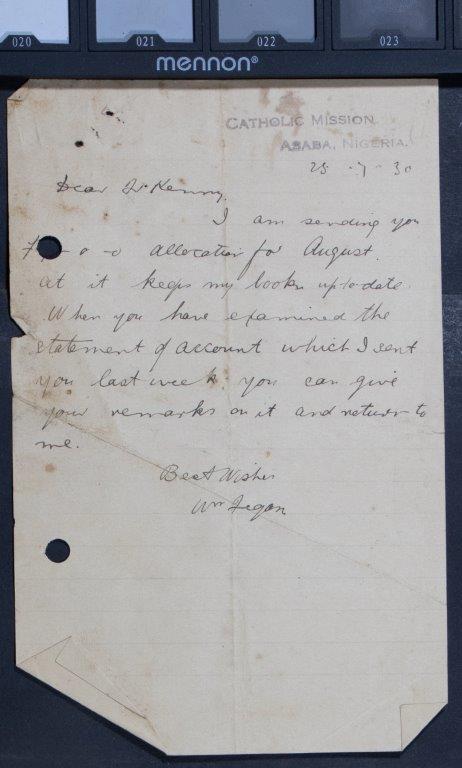 020 021 022 023
mennon®
CATHOLIC MISSION,
ASABA, NIGERIA.
25 - 7 - 30
Dear Fr Kenny,
I am sending you
- o - o allocation for August.
at it keeps my books up-to-date.
When you have examined the
statement of account which I sent
you last week you can give
your remarks on it and return to
me.
Best Wishes
Wm Fegan